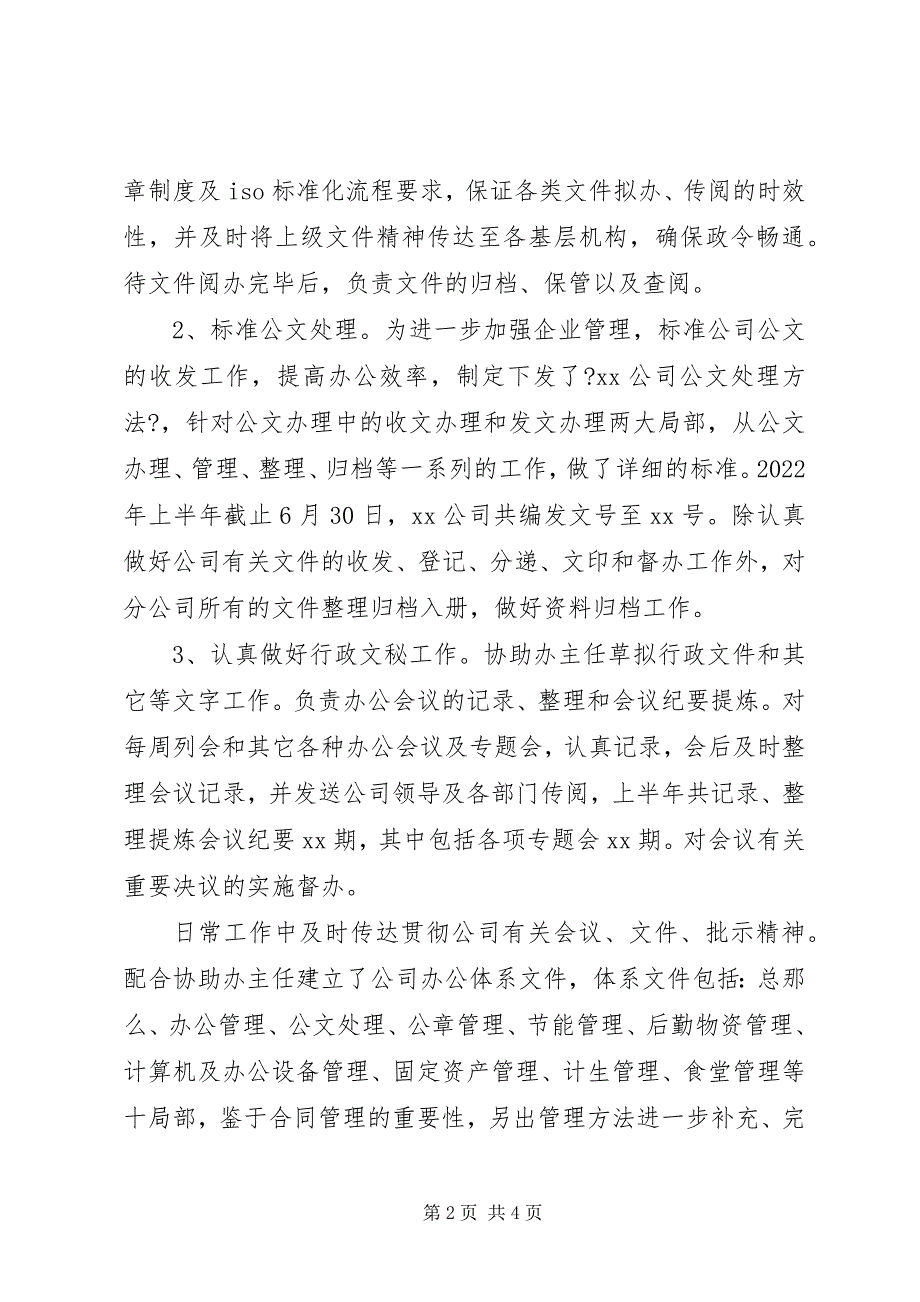 章制度及 iso 标准化流程要求，保证各类文件拟办、传阅的时效
性，并及时将上级文件精神传达至各基层机构，确保政令畅通。
待文件阅办完毕后，负责文件的归档、保管以及查阅。
2、标准公文处理。为进一步加强企业管理，标准公司公文
的收发工作，提高办公效率，制定下发了?xx 公司公文处理方
法?，针对公文办理中的收文办理和发文办理两大局部，从公文
办理、管理、整理、归档等一系列的工作，做了详细的标准。2022
年上半年截止 6 月 30 日，xx 公司共编发文号至 xx 号。除认真
做好公司有关文件的收发、登记、分递、文印和督办工作外，对
分公司所有的文件整理归档入册，做好资料归档工作。
3、认真做好行政文秘工作。协助办主任草拟行政文件和其
它等文字工作。负责办公会议的记录、整理和会议纪要提炼。对
每周列会和其它各种办公会议及专题会，认真记录，会后及时整
理会议记录，并发送公司领导及各部门传阅，上半年共记录、整
理提炼会议纪要 xx 期，其中包括各项专题会 xx 期。对会议有关
重要决议的实施督办。
日常工作中及时传达贯彻公司有关会议、文件、批示精神。
配合协助办主任建立了公司办公体系文件，体系文件包括：总那
么、办公管理、公文处理、公章管理、节能管理、后勤物资管理、
计算机及办公设备管理、固定资产管理、计生管理、食堂管理等
十局部，鉴于合同管理的重要性，另出管理方法进一步补充、完
第 2 页 共 4 页